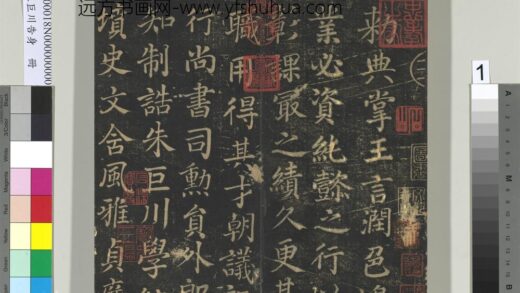 远方书画网:www.yfshuhua.com
勅典掌王言潤色
業必資純懿之行
彰課最之績久更其
職用得其才朝議
行尚書司勳員外郎
知制誥朱巨川學
墳史文含風雅貞
巨川告身 冊
00018N000000000
1